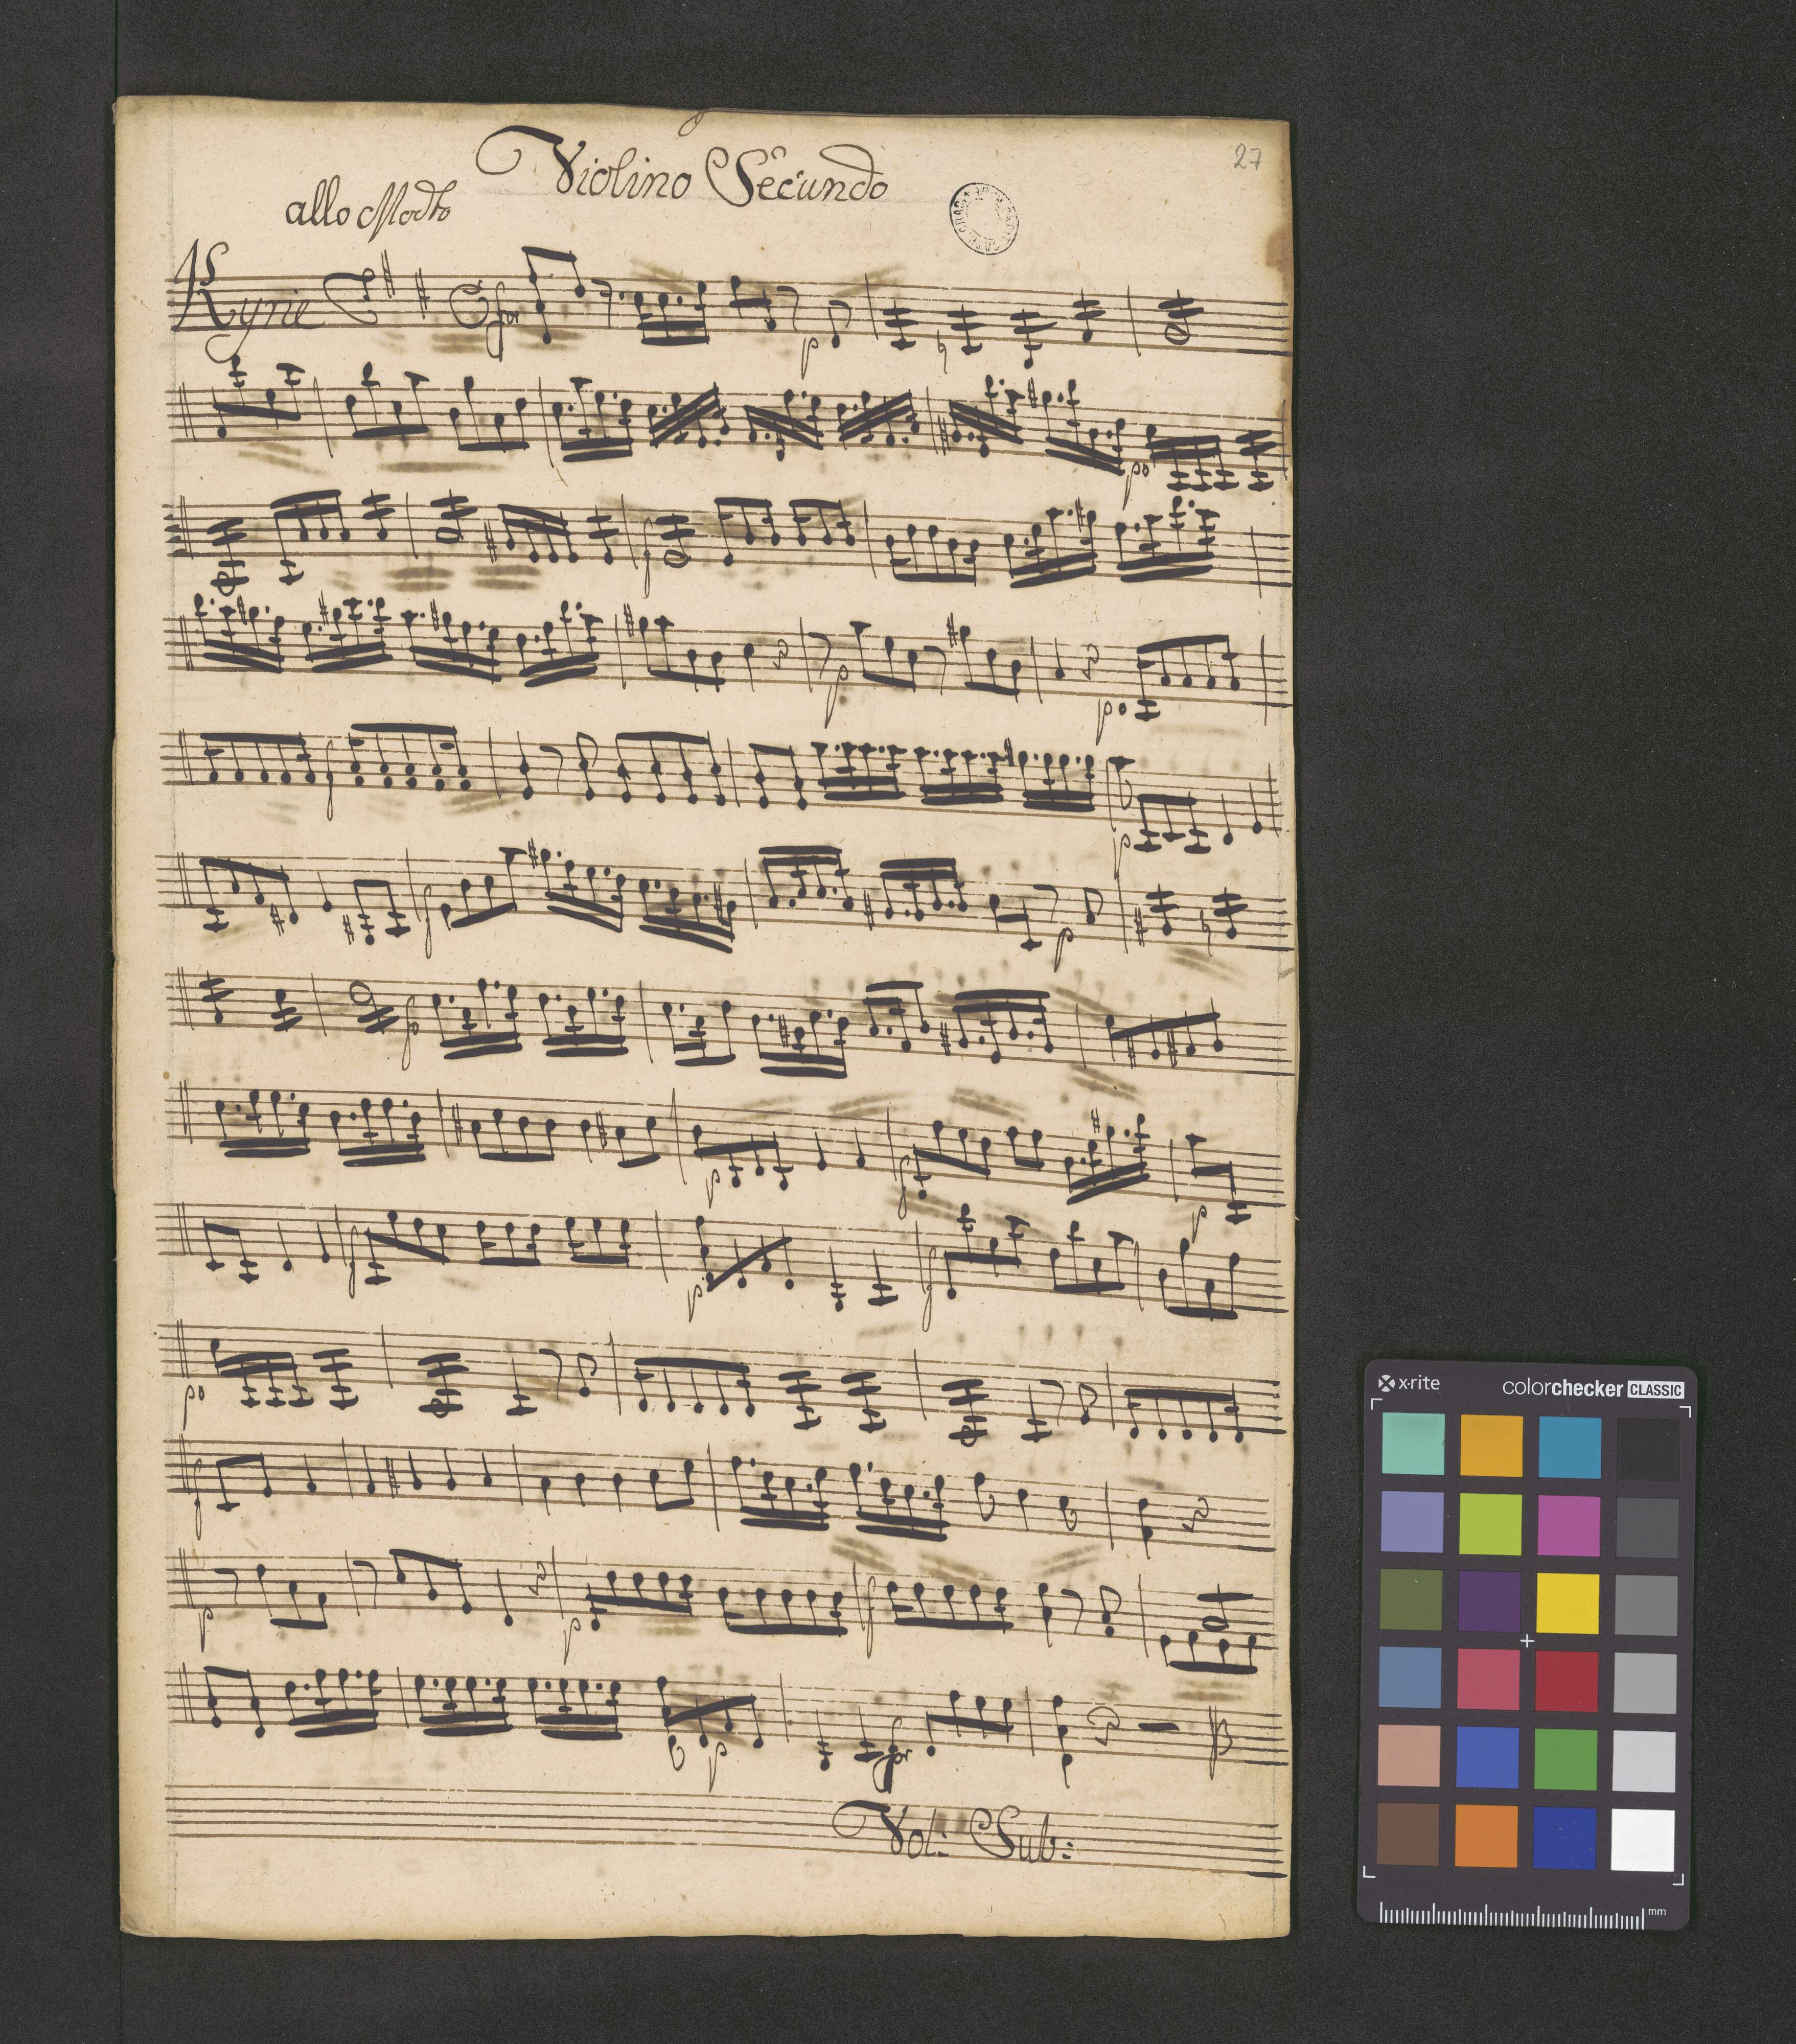 27
Violino Secundo
allo Modto
Kyrie
for
p
po
f
p
po
f
p
f
p
f
p
f
p
f
p
f
po
f
p
p
f
p
for
Vol: Sub:
x·rite
colorchecker CLASSIC
mm